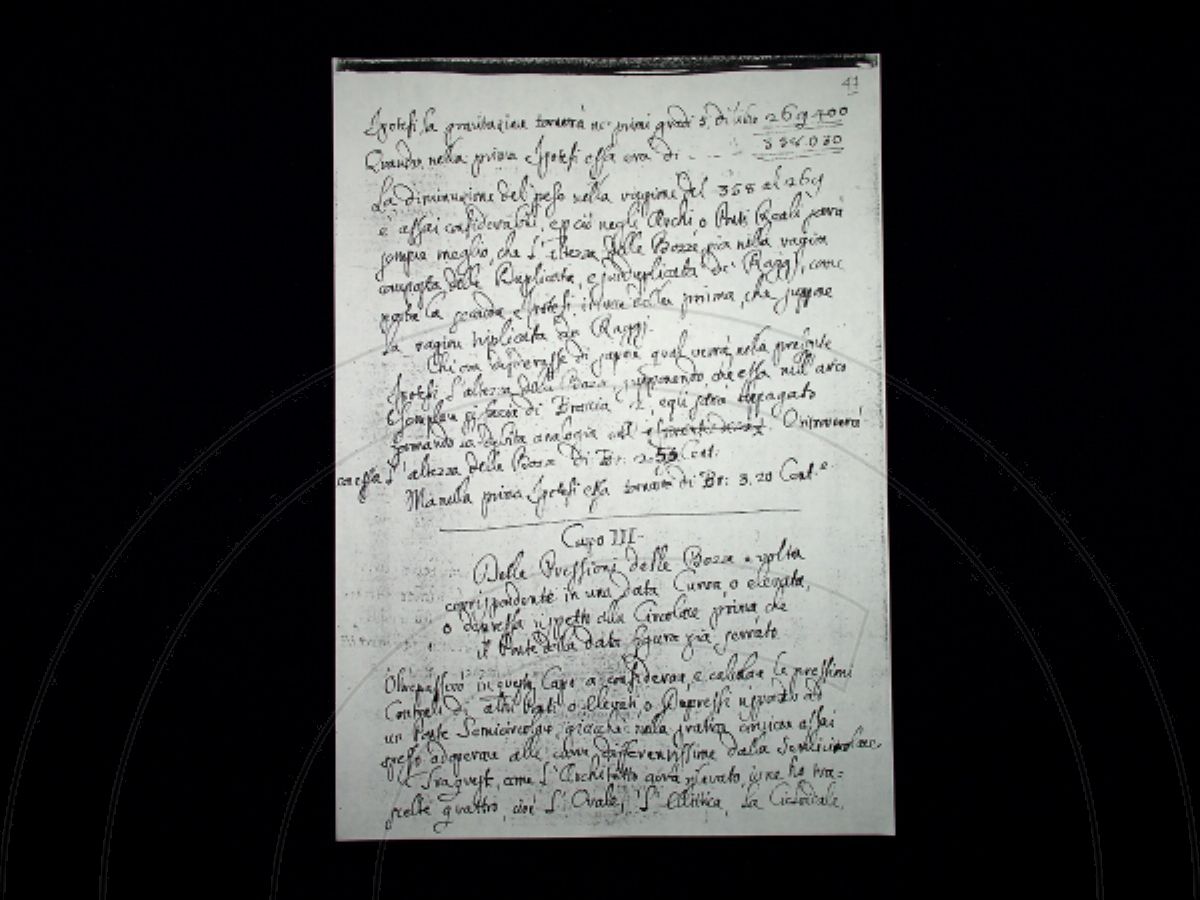 41
Ipotesi la gravitazione tornerà ne' primi gradi 5. di libre 269.400
Quando nella prima Ipotesi essa era di - - - 358.030
La diminuzione del peso nella raggione del 358 al 269
è assai considerabile, e perciò negli Archi o Ponti Reali sarà
sempre meglio, che l'altezza delle Bozze sia nella ragion
composta della Duplicata, e sudduplicata de' Raggi, come
porta la seconda Ipotesi in vece della prima, che suppone
la ragion triplicata de Raggi.
Chi ora di sapere qual verrà nella presente
Ipotesi l'altezza della Bozza, supponendo che essa nell'arco
di Braccia 2, egli sarà appagato
formando la debita analogia nell' Critroverà
con essa l'altezza della Bozza di Br: 2.53 Cent:
Ma nella prima Ipotesi essa tornava di Br: 3.20 Cent.e
Capo III.
Delle Pressioni delle Bozze a volta
corrispondente in una data Curva, o elevata,
o depressa rispetto alla Circolare prima che
il Ponte della data figura sia serrato
Oltrepassiò in questo Capo a considerar, e calcolar le pressioni
Centrali di altri Ponti o Elevati, o Depressi rispetto ad
un Ponte Semicircolare, giacchè nella pratica assai
spesso adoperare alle curve differentissime dalla Semicircolare.
Tra queste, come l'Architetto avrà rilevato, io ne ho tra=
scelte quattro, cioè l'Ovale, l'Ellittica, la Cicloidale,